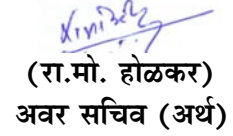 (रा.मो. होळकर)
अवर सचिव (अर्थ)